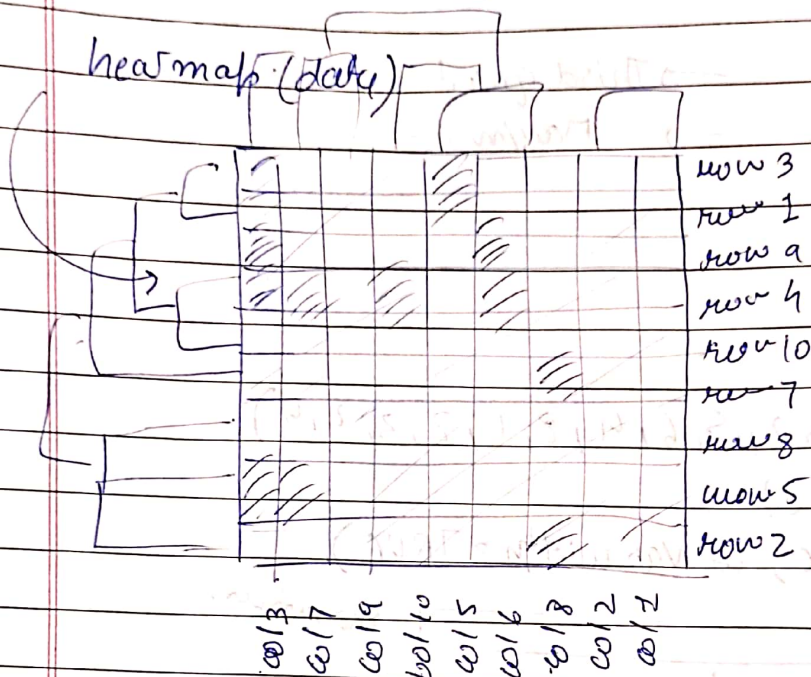 heatmap (data)
row 3
row 1
row 9
row 4
row 10
row 7
row 8
row 5
row 2
col 3
col 7
col 9
col 10
col 5
col 6
col 8
col 2
col 1